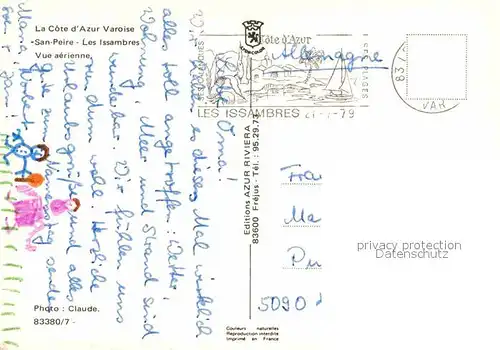 La Côte d'Azur Varoise
-San-Peïre - Les Issambres
Vue aérienne.
Liebe Oma!
Wir haben es dieses Mal wirklich
alles toll angetroffen: Wetter,
Wohnung, Meer und Strand sind
wunderbar. Wir fühlen uns
rundum wohl. Herzliche
Urlaubsgrüße und alles
Gute zum Namenstag senden
Maria, Robert
Photo : Claude.
83380/7 -
Côte d'Azur
LES ISSAMBRES
21-7-79
83
VAR
Allemagne
Editions AZUR RIVIERA
83600 Fréjus - Tél. : 95.29.73
Fra
Ma
Pu
5090
privacy protection
Datenschutz
Couleurs naturelles
Reproduction interdite
Imprimé en France